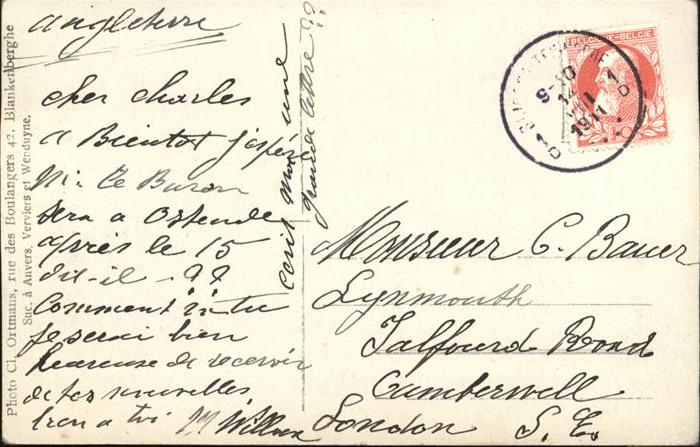 Angleterre
Cher Charles
a Bientot j'espère
Mr Le Baron
sera a Ostende
après le 15
dit-il - ??
Comment va tu
je serai bien
heureuse de recevoir
de tes nouvelles
bien a toi M Willems
écrit moi une
grande lettre ??
Photo Cl. Ortmans, rue des Boulangers 42, Blankenberghe
Suc. à Anvers, Verviers et Wenduyne.
BELGIQUE-BELGIE
10
9-10
14
VII
1911
Monsieur C. Bauer
Lynmouth
Talfourd Road
Camberwell
London S. E.